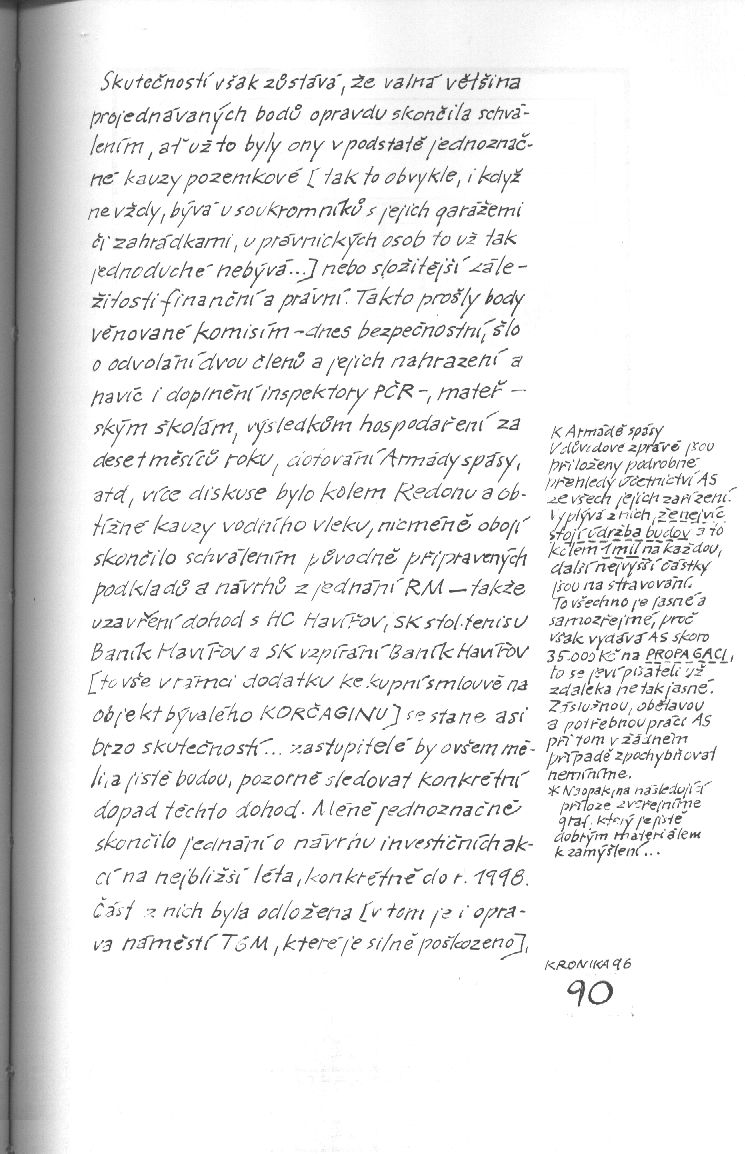 Skutečností však zůstává, že valná většina
projednávaných bodů opravdu skončila schvá-
lením, ať už to byly ony v podstatě jednoznač-
né kauzy pozemkové [tak to obvykle, i když
ne vždy, bývá u soukromníků s jejich garážemi
či zahrádkami, u právnických osob to už tak
jednoduché nebývá...] nebo složitější zále-
žitosti finanční a právní. Takto prošly body
věnované komisím – dnes bezpečnostní, šlo
o odvolání dvou členů a jejich nahrazení a
navíc i doplnění inspektory PČR –, mateř-
ským školám, výsledkům hospodaření za
deset měsíců roku, dotování Armády spásy,
atd, více diskuse bylo kolem Redonu a ob-
tížné kauzy vodního vleku, nicméně obojí
skončilo schválením původně připravených
podkladů a návrhů z jednání RM – takže
uzavření dohod s HC Havířov, SK stol. tenisu
Baník Havířov a SK vzpírání Baník Havířov
[to vše v rámci dodatku ke kupní smlouvě na
objekt bývalého KORČAGINU] se stane asi
brzo skutečností... zastupitelé by ovšem mě-
li, a jistě budou, pozorně sledovat konkrétní
dopad těchto dohod. Méně jednoznačně
skončilo jednání o návrhu investičních ak-
cí na nejbližší léta, konkrétně do r. 1998.
Část z nich byla odložena [v tom je i opra-
va náměstí TGM, které je silně poškozeno],
K Armádě spásy
V důvodové zprávě jsou
přiloženy podrobné
přehledy účetnictví AS
ze všech jejich zařízení.
Vyplývá z nich, že nejvíc
stojí údržba budov a to
kolem 1 mil na každou,
další nejvyšší částky
jsou na stravování.
To všechno je jasné a
samozřejmé, proč
však vydává AS skoro
35.000 Kč na PROPAGACI,
to se jeví pisateli už
zdaleka ne tak jasné.
Záslužnou, obětavou
a potřebnou práci AS
při tom v žádném
případě zpochybňovat
nemíníme.
* Naopak, na následující
příloze zveřejníme
graf, který je jistě
dobrým materiálem
k zamyšlení...
KRONIKA 96
90